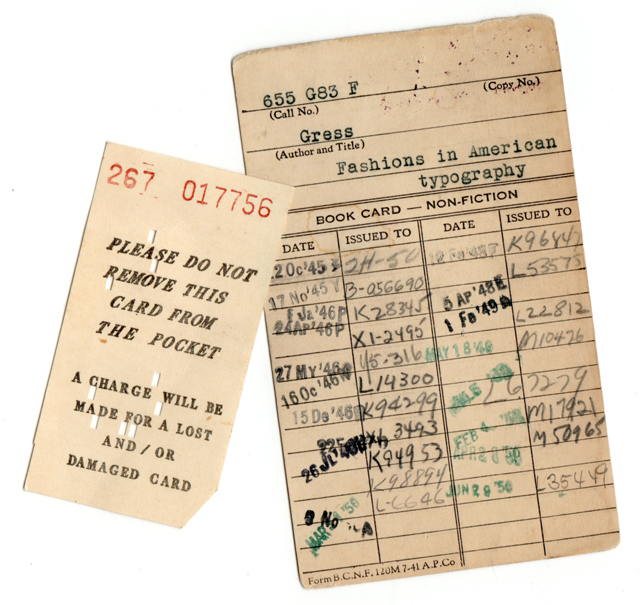 267 017756
PLEASE DO NOT
REMOVE THIS
CARD FROM
THE POCKET
A CHARGE WILL BE
MADE FOR A LOST
AND / OR
DAMAGED CARD
655 G83 F
(Call No.) (Copy No.)
Gress
(Author and Title)
Fashions in American
typography
BOOK CARD — NON-FICTION
DATE ISSUED TO DATE ISSUED TO
2 Oc '45 2H-50 K96847
17 No '45 3-056690 L53575
Ja '46 P K28345 5 Ap '48 E
24 Ap '46 P X1-2495 1 Fe '49 L22812
27 My '46 MAY 18 '49 M10476
16 Oc '46 L14300 67279
15 De '46 K94299 FEB 4 '50 M17921
26 JL 3493 '50 M50965
K94953
K98894 JUN 29 '50 L35449
MAR '50
Form B.C.N.F. 120M 7-41 A.P.Co